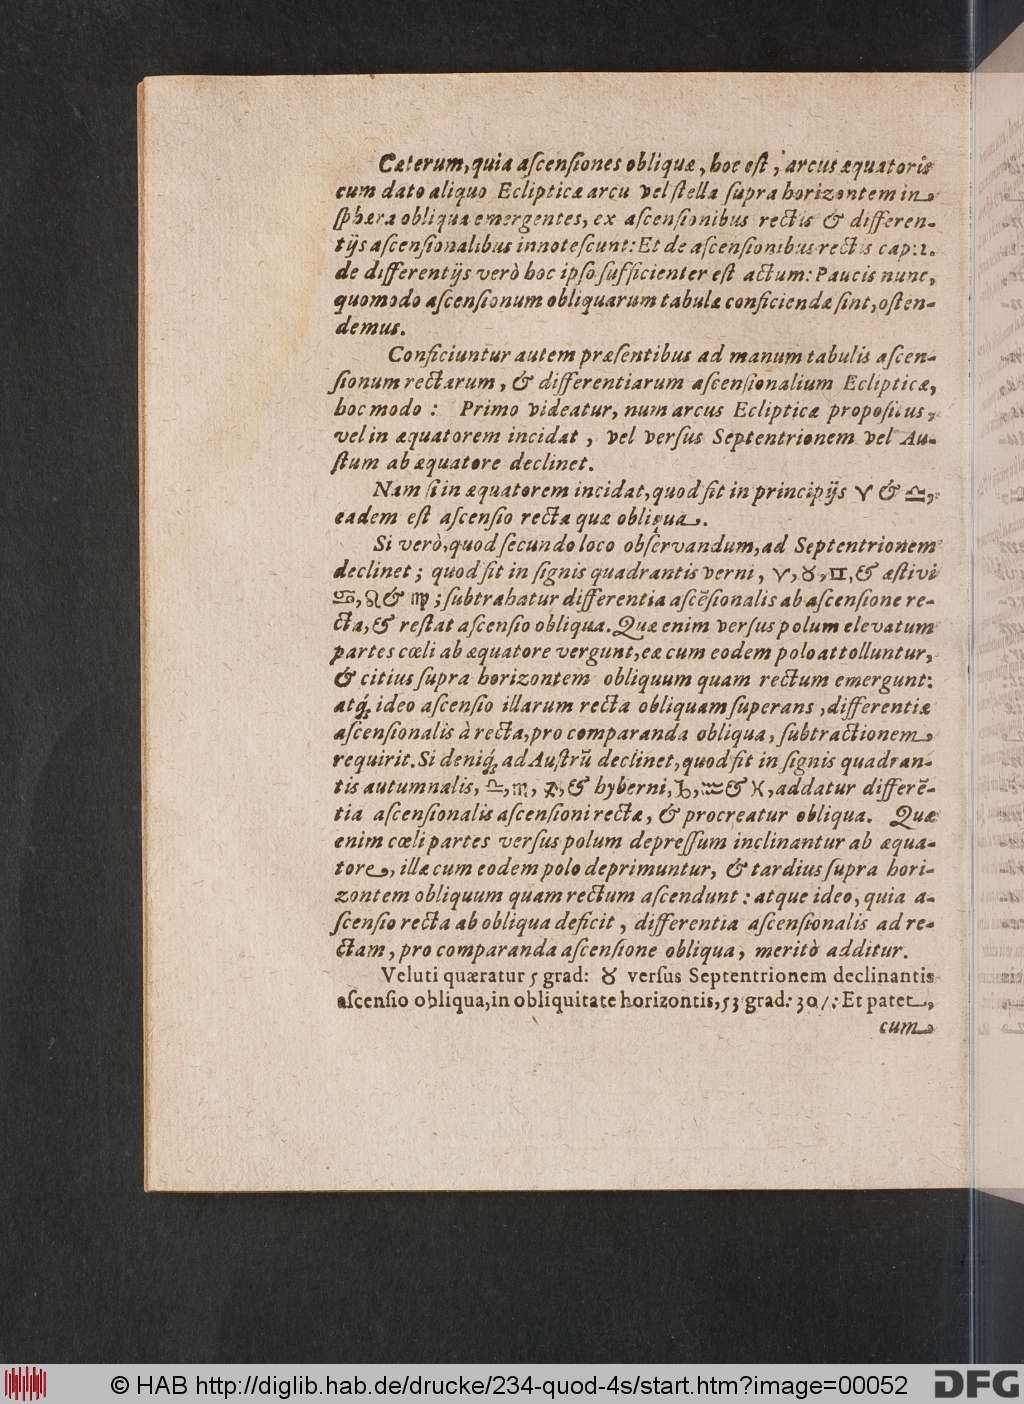 Cæterum, quia aſcenſiones obliquæ, hoc eſt, arcus æquatoris
cum dato aliquo Eclipticæ arcu vel ſtella ſupra horizontem in
ſphæra obliqua emergentes, ex aſcenſionibus rectis & differen-
tijs aſcenſionalibus innoteſcunt: Et de aſcenſionibus rectis cap: 1.
de differentijs verò hoc ipſo ſufficienter eſt actum: Paucis nunc,
quomodo aſcenſionum obliquarum tabulæ conficiendæ ſint, oſten-
demus.
Conficiuntur autem præſentibus ad manum tabulis aſcen-
ſionum rectarum, & differentiarum aſcenſionalium Eclipticæ,
hoc modo: Primo videatur, num arcus Eclipticæ propoſitus,
vel in æquatorem incidat, vel verſus Septentrionem vel Au-
ſtum ab æquatore declinet.
Nam ſi in æquatorem incidat, quod fit in principijs ♈ & ♎,
eadem eſt aſcenſio recta quæ obliqua.
Si verò, quod ſecundo loco obſervandum, ad Septentrionem
declinet; quod fit in ſignis quadrantis verni, ♈, ♉, ♊, & æſtivi
♋, ♌ & ♍; ſubtrahatur differentia aſcẽſionalis ab aſcenſione re-
cta, & reſtat aſcenſio obliqua. Quæ enim verſus polum elevatum
partes cœli ab æquatore vergunt, eæ cum eodem polo attolluntur,
& citius ſupra horizontem obliquum quam rectum emergunt:
atq́; ideo aſcenſio illarum recta obliquam ſuperans, differentiæ
aſcenſionalis à recta, pro comparanda obliqua, ſubtractionem
requirit. Si deniq́; ad Auſtrũ declinet, quod fit in ſignis quadran-
tis autumnalis, ♎, ♏, ♐, & hyberni, ♑, ♒ & ♓, addatur differẽ-
tia aſcenſionalis aſcenſioni rectæ, & procreatur obliqua. Quæ
enim cœli partes verſus polum depreſſum inclinantur ab æqua-
tore, illæ cum eodem polo deprimuntur, & tardius ſupra hori-
zontem obliquum quam rectum aſcendunt: atque ideo, quia a-
ſcenſio recta ab obliqua deficit, differentia aſcenſionalis ad re-
ctam, pro comparanda aſcenſione obliqua, meritò additur.
Veluti quæratur 5 grad: ♉ verſus Septentrionem declinantis
aſcenſio obliqua, in obliquitate horizontis, 53 grad: 30 /: Et patet,
cum
© HAB http://diglib.hab.de/drucke/234-quod-4s/start.htm?image=00052
DFG